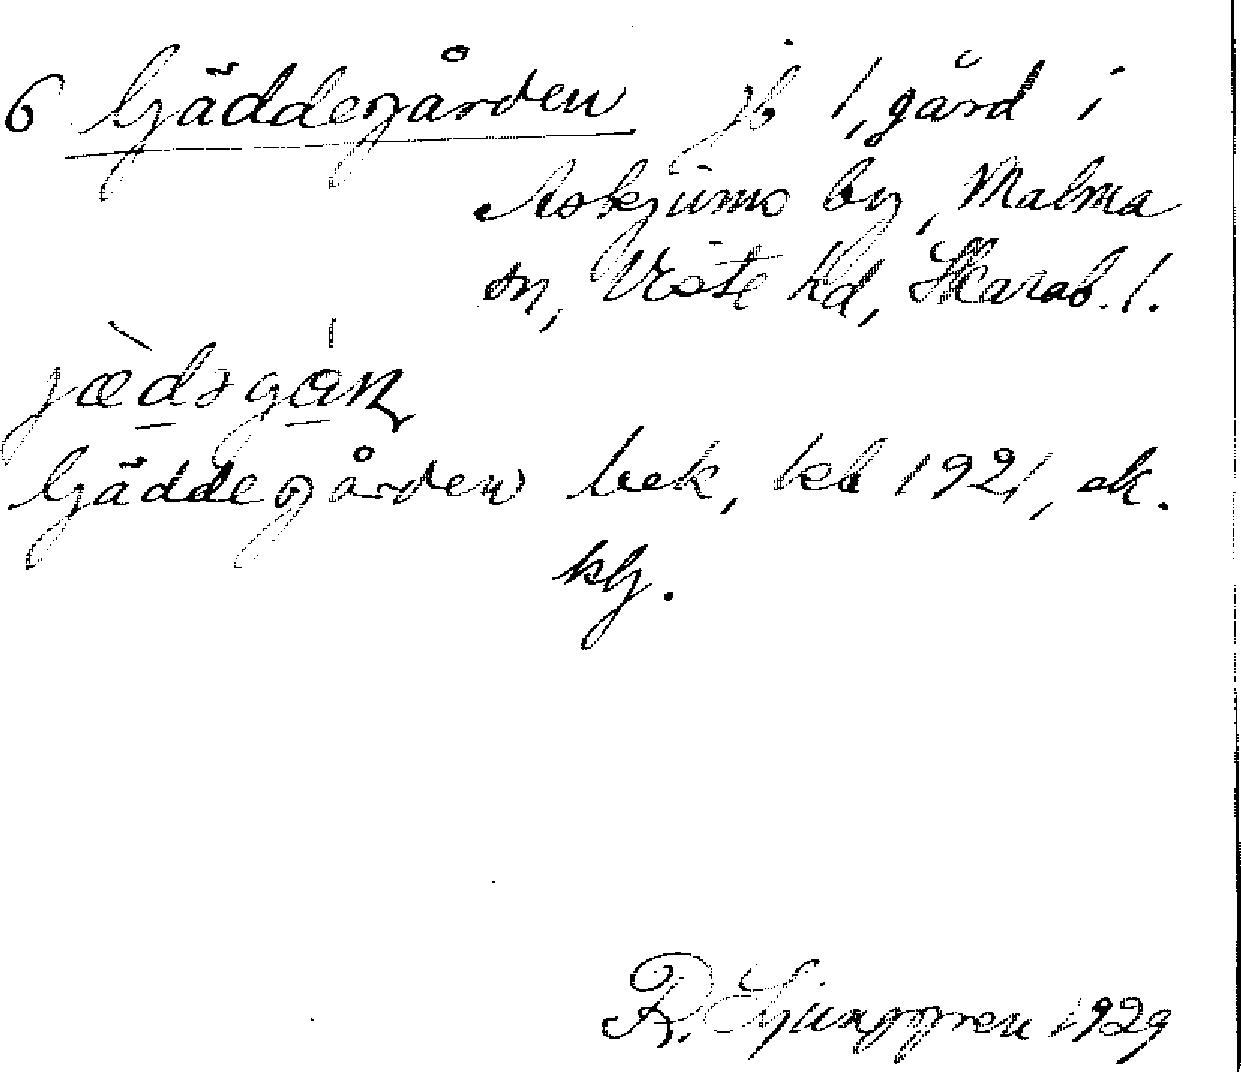 6 Gäddegården jb 1, gård i
Askjums by, Malma
sn, Viste hd, Skarab. l.
jæ̀dəgán
Gäddegården bek, tsb 1921, ek.
klg.
R. Ljunggren 1929